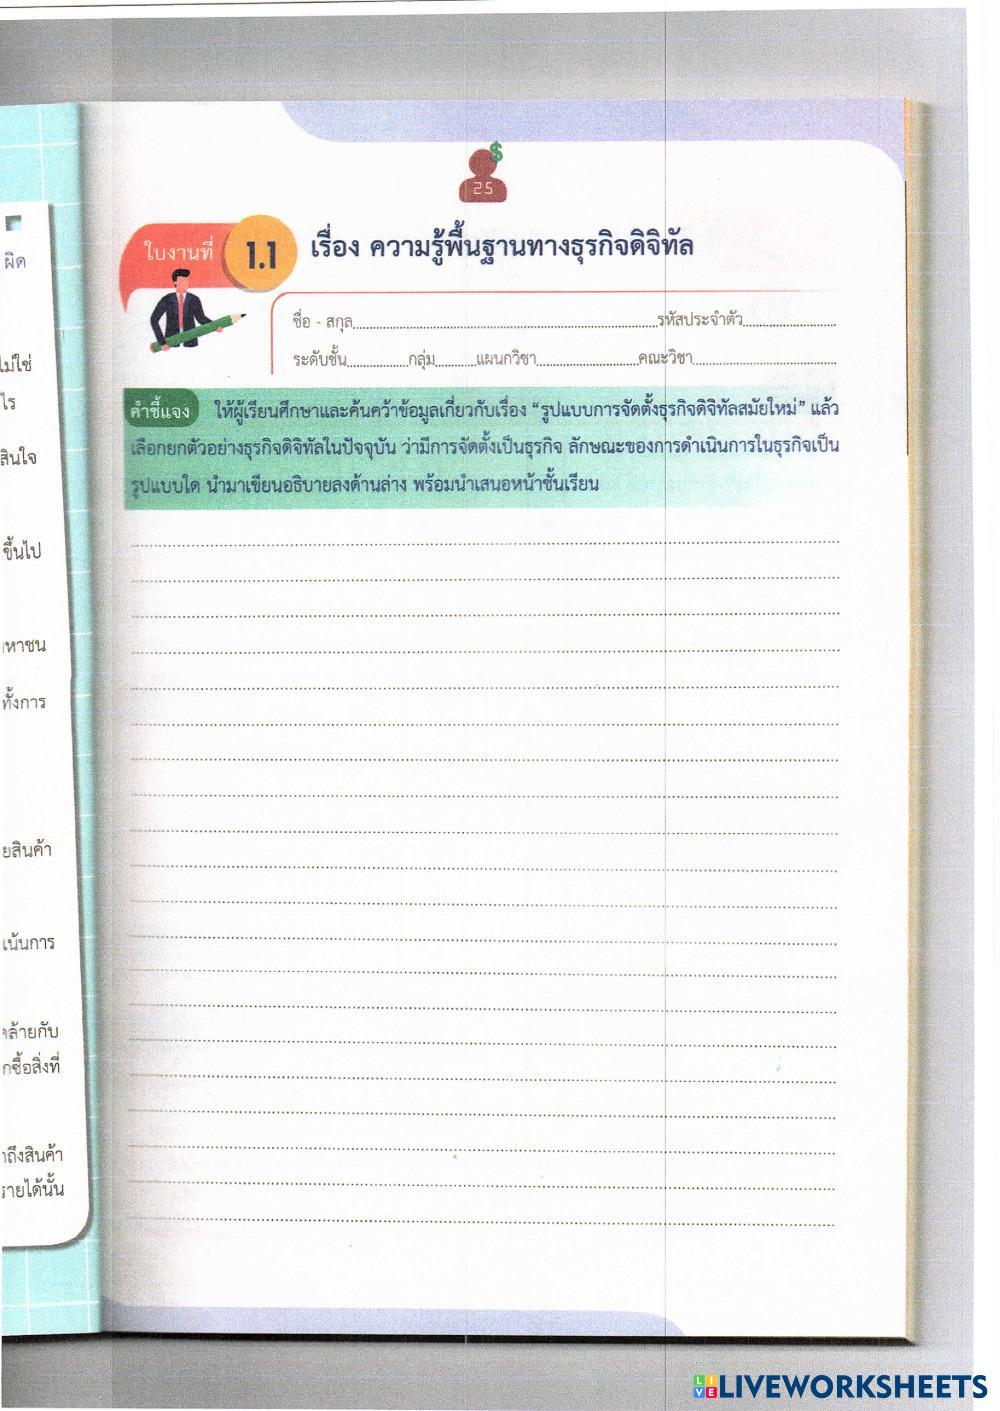 25
ใบงานที่ 1.1 เรื่อง ความรู้พื้นฐานทางธุรกิจดิจิทัล
ชื่อ - สกุล รหัสประจำตัว
ระดับชั้น กลุ่ม แผนกวิชา คณะวิชา
คำชี้แจง ให้ผู้เรียนศึกษาและค้นคว้าข้อมูลเกี่ยวกับเรื่อง “รูปแบบการจัดตั้งธุรกิจดิจิทัลสมัยใหม่” แล้ว
เลือกยกตัวอย่างธุรกิจดิจิทัลในปัจจุบัน ว่ามีการจัดตั้งเป็นธุรกิจ ลักษณะของการดำเนินการในธุรกิจเป็น
รูปแบบใด นำมาเขียนอธิบายลงด้านล่าง พร้อมนำเสนอหน้าชั้นเรียน
ผิด
ไม่ใช่
ไร
สินใจ
ขึ้นไป
มหาชน
ทั้งการ
ยสินค้า
เน้นการ
คล้ายกับ
กซื้อสิ่งที่
าถึงสินค้า
รายได้นั้น
LIVEWORKSHEETS